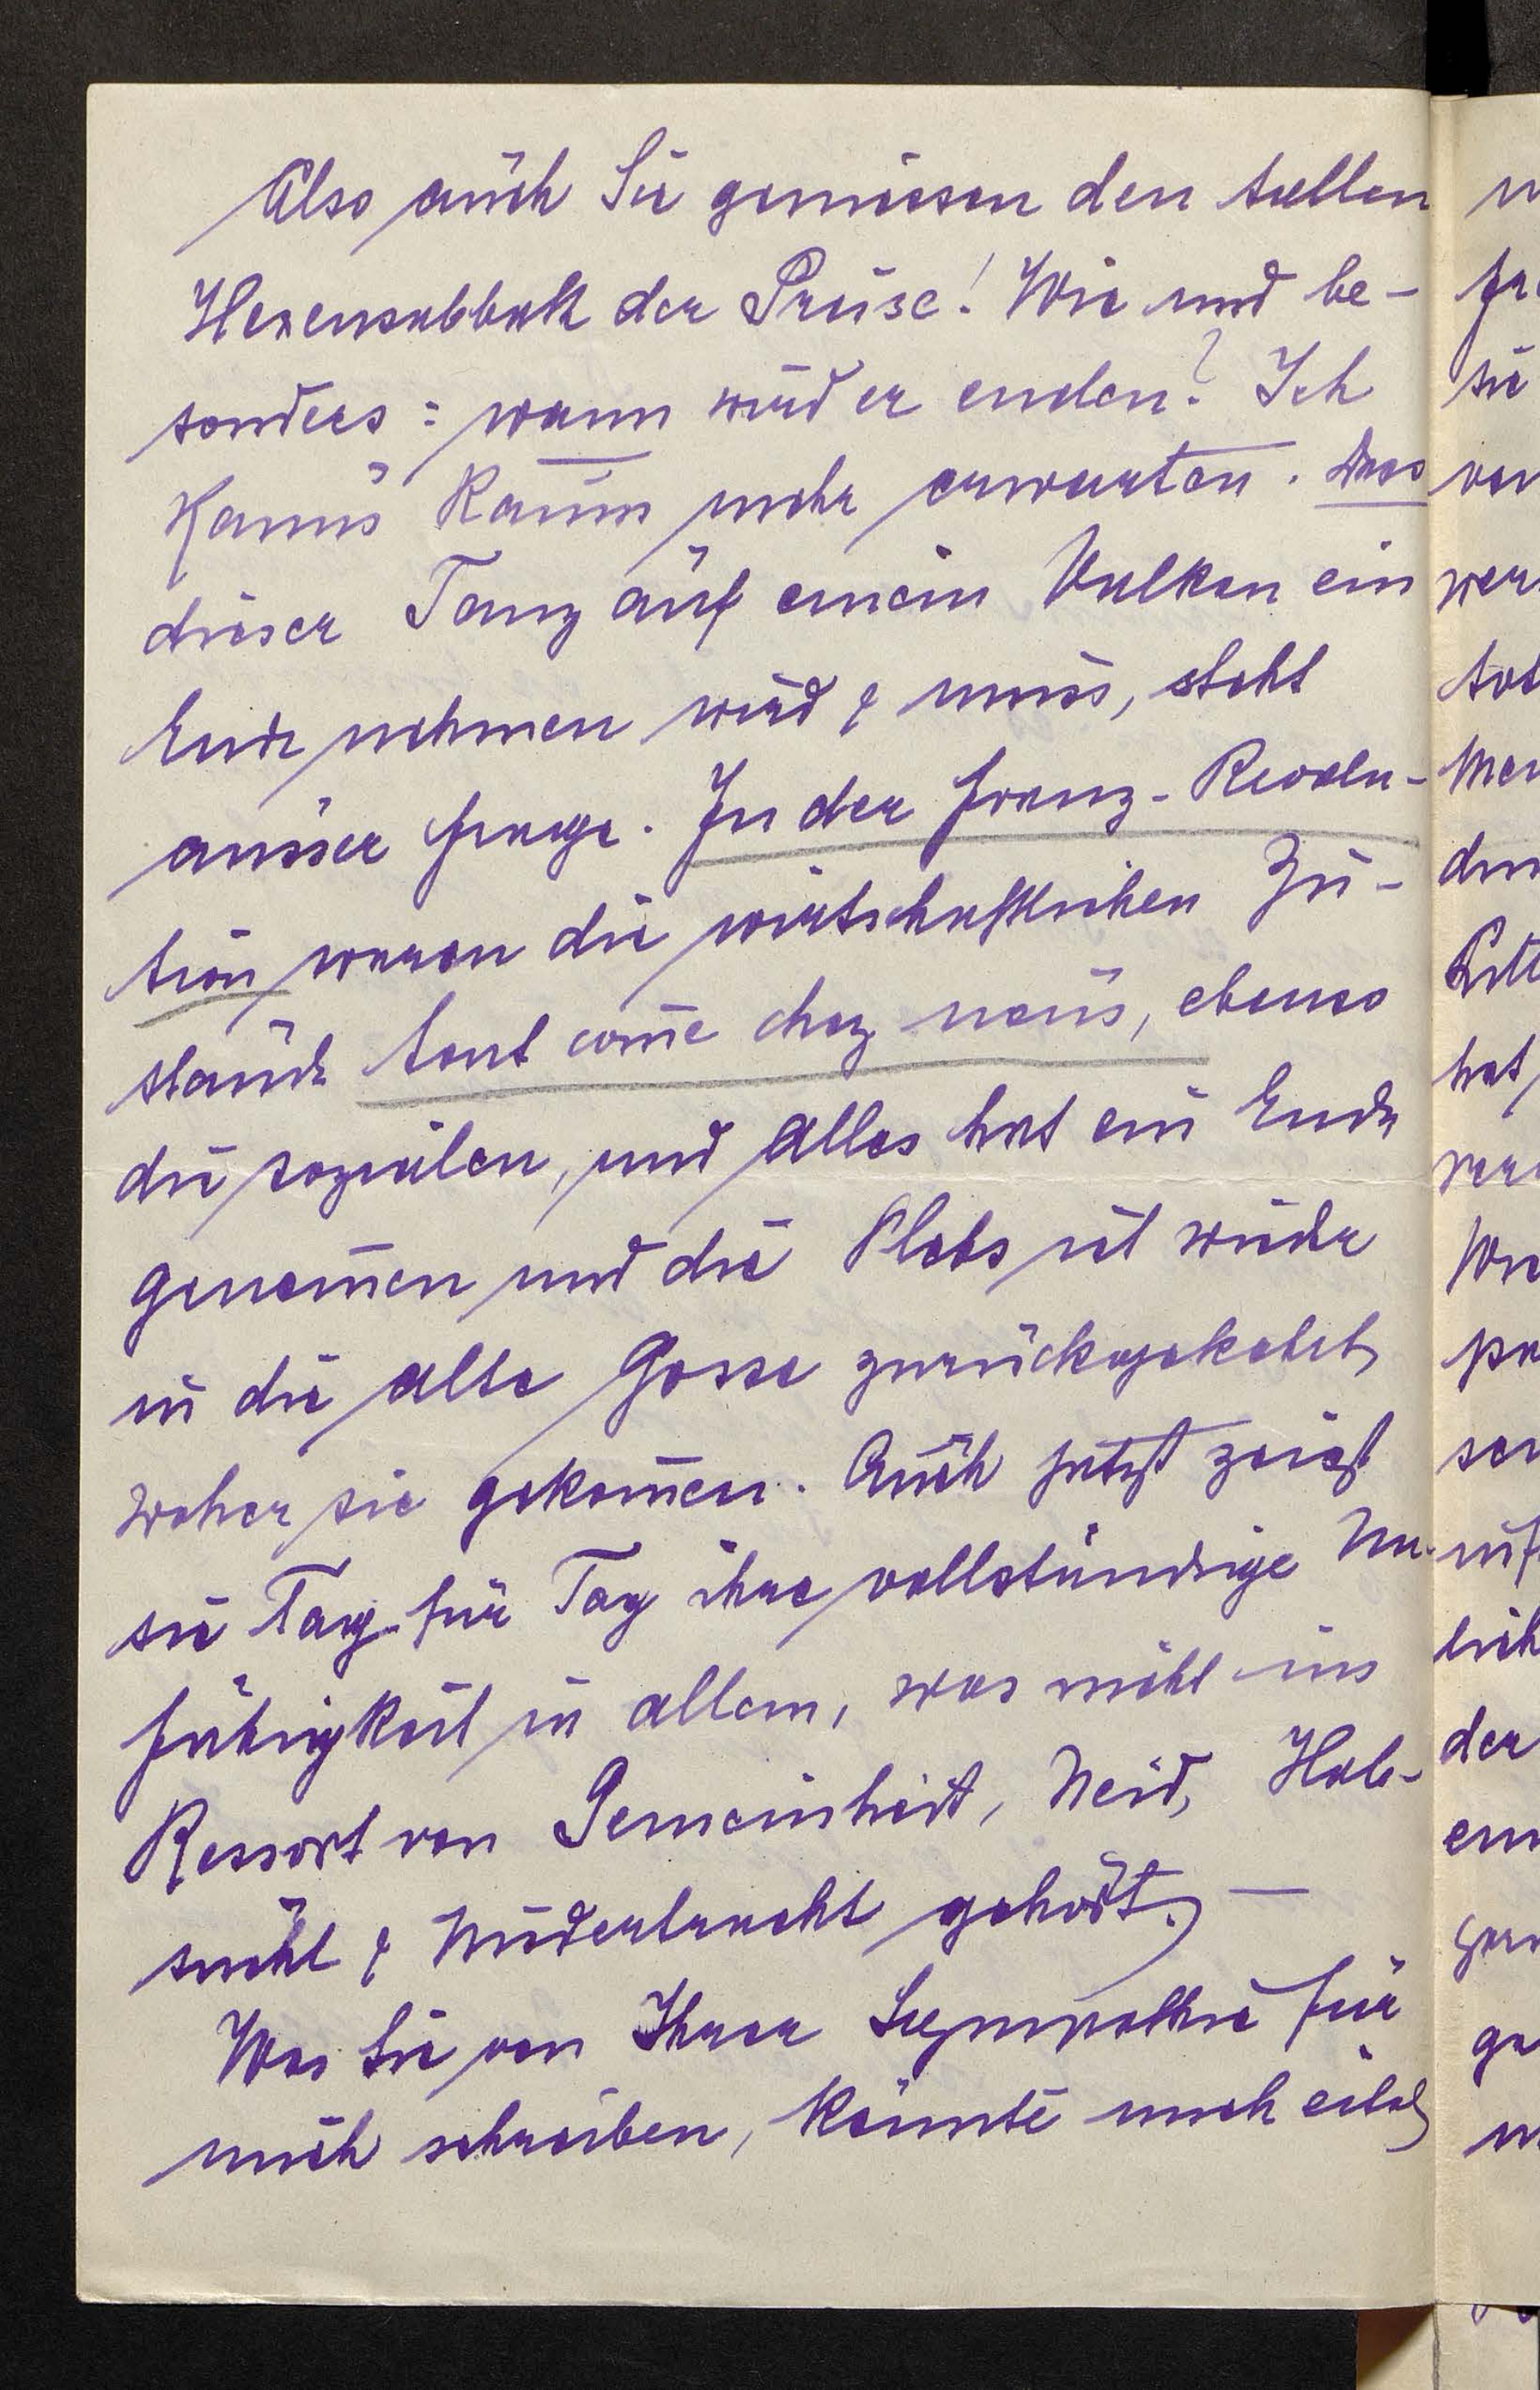 Also auch Sie geniessen den tollen
Hexensabbath der Preise! Wie und be-
sonders: wann wird er enden? Ich
kann's kaum mehr erwarten. Dass
dieser Tanz auf einem Vulkan ein
Ende nehmen wird & muss, steht
ausser Frage. In der franz. Revolu-
tion waren die wirtschaftlichen Zu-
stände tout com̅e chez nous, ebenso
die sozialen, und alles hat ein Ende
genom̅en und die Plebs ist wieder
in die alte Gosse zurückgekehrt,
woher sie gekom̅en. Auch jetzt zeigt
sie Tag für Tag ihre vollständige Un-
fähigkeit in allem, was nicht ins
Ressort von Gemeinheit, Neid, Hab-
sucht & Niedertracht gehört. —
Was Sie von Ihrer Sympathie für
mich schreiben, könnte mich eitel